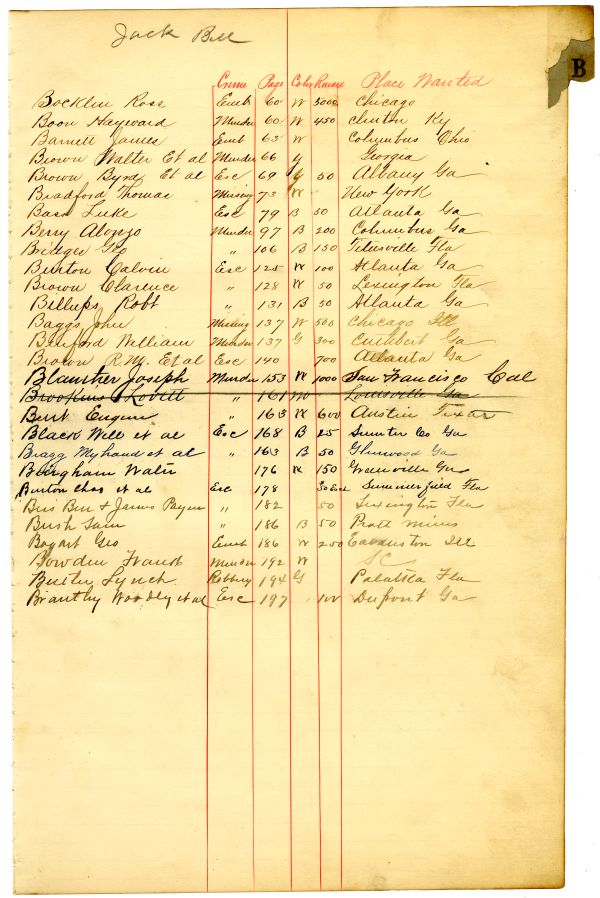 Jack Bell
B
Crime Page Color Reward Place Wanted
Bocklin Rose Emb 60 W 5000 Chicago
Boon Hayward Murder 60 W 450 Clinton Ky
Barnett James Emb 63 W Columbus Ohio
Brown Walter Et al Murder 66 Y Georgia
Brown Byrd Et al Esc 69 Y 50 Albany Ga
Bradford Thomas Missing 73 W New York
Bass Luke Esc 79 B 50 Atlanta Ga
Berry Alonzo Murder 97 B 200 Columbus Ga
Bridges Geo " 106 B 150 Titusville Fla
Burton Calvin Esc 125 W 100 Atlanta Ga
Brown Clarence " 128 W 50 Lexington Fla
Billups Robt " 131 B 50 Atlanta Ga
Baggs John Missing 137 W 500 Chicago Ill
Binford William Murder 137 G 300 Cuthbert Ga
Brown R.M. Et al Esc 140 700 Atlanta Ga
Blanther Joseph Murder 153 W 1000 San Francisco Cal
Brookins Lovett " 161 Louisville Ga
Burt Eugene " 163 W 600 Austin Texas
Black Will et al Esc 168 B 25 Sumter Co Ga
Bragg Myhand et al " 163 B 50 Glenwood Ga
Bingham Walter 176 W 150 Greenville Ga
Burton Chas et al Esc 178 30 Summerfield Fla
Bus Ben & James Payne " 182 50 Lexington Fla
Bush Sam " 186 B 50 Pratt Mines
Bogart Geo Emb 186 W 250 Evanston Ill
Bowden Frank Murder 192 W SC
Buster Lynch Robbery 194 G Palatka Fla
Brantley Woodly et al Esc 197 100 Dupont Ga